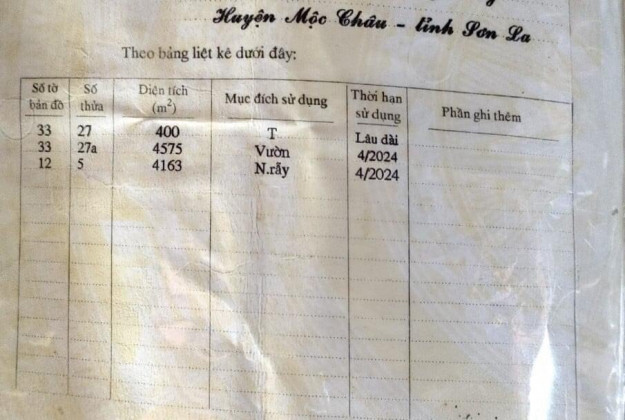 Huyện Mộc Châu - tỉnh Sơn La
Theo bảng liệt kê dưới đây:
Số tờ bản đồ | Số thửa | Diện tích (m²) | Mục đích sử dụng | Thời hạn sử dụng | Phần ghi thêm
33 | 27 | 400 | T | Lâu dài
33 | 27a | 4575 | Vườn | 4/2024
12 | 5 | 4163 | N.rẫy | 4/2024